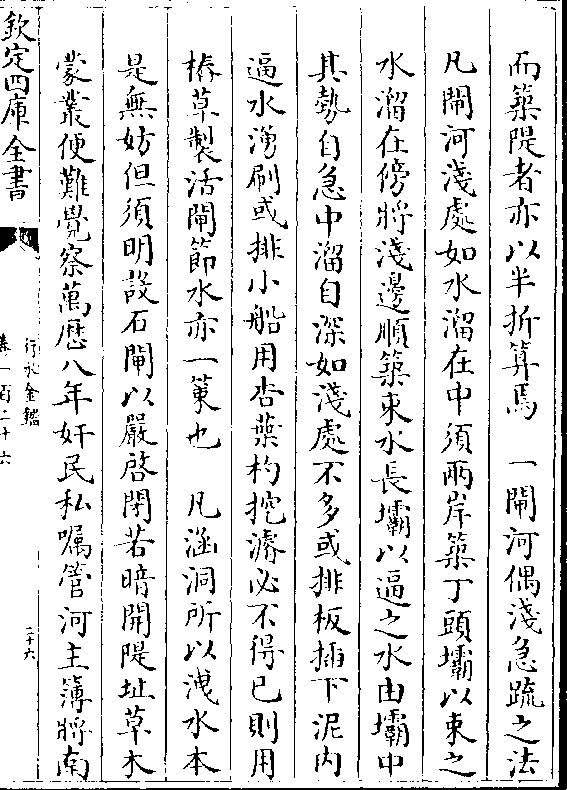 而築隄者亦以半折算焉　一閘河偶淺急疏之法
凡閘河淺處如水溜在中須兩岸築丁頭壩以束之
水溜在傍將淺邊順築束水長壩以逼之水由壩中
其勢自急中溜自深如淺處不多或排板插下泥内
逼水湧刷或排小船用杏葉杓挖濬必不得已則用
樁草製活閘節水亦一策也　凡涵洞所以洩水本
是無妨但須明設石閘以嚴啓閉若暗開隄址草木
蒙叢便難覺察萬厯八年奸民私囑管河主簿將南
欽定四庫全書
行水金鑑
卷一百二十六
二十六